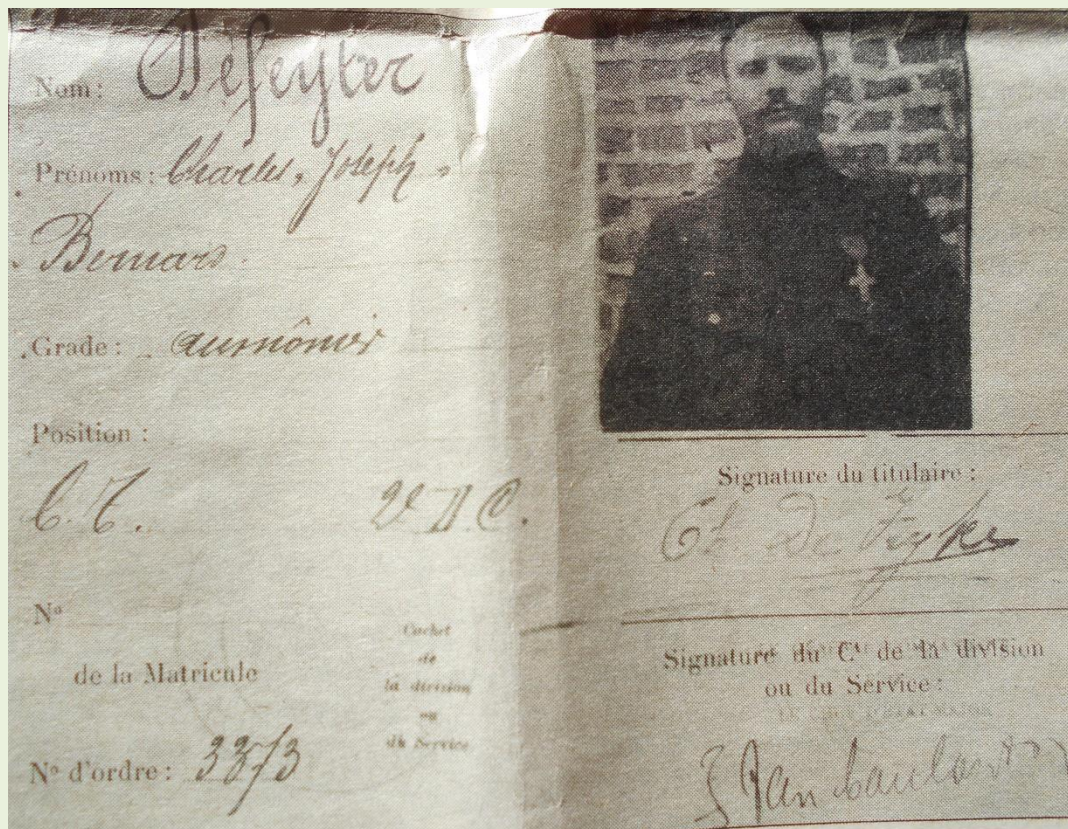 Nom : Deseyter
Prénoms : Charles, Joseph,
Bernard
Grade : aumônier
Position :
C. T. 2e D. C.
No
de la Matricule
Cachet
de
la division
ou
du Service
No d'ordre : 3373
Signature du titulaire :
Ch De
Signature du Ct de la division
ou du Service :